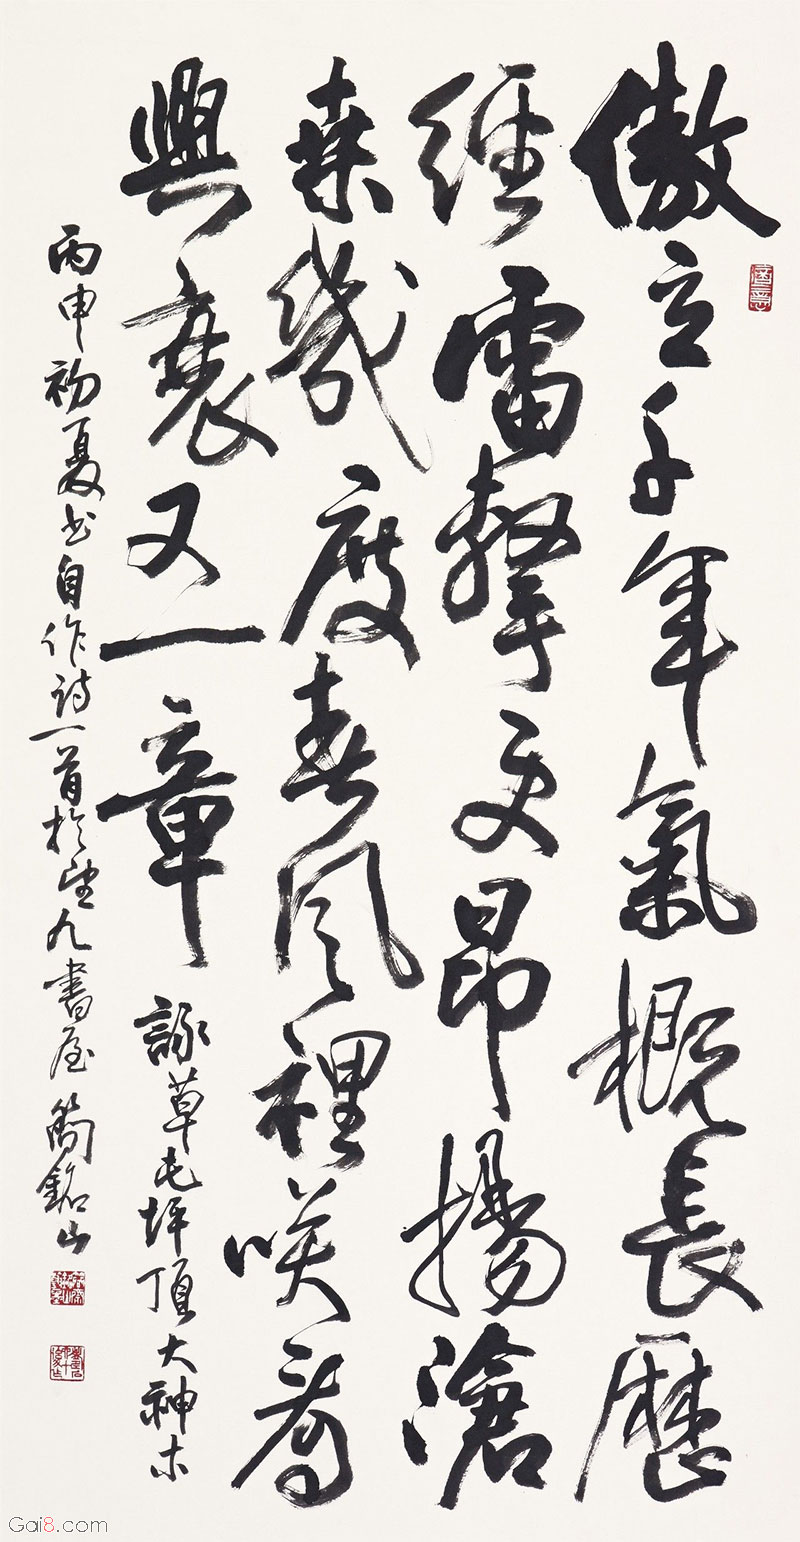 傲立千年氣概長歷
經雷擊更昂揚滄
桑幾度春風裡笑看
興衰又一章
詠草屯坪頂大神木
丙申初夏书自作詩一首於望九書屋簡銘山
Gai8.com